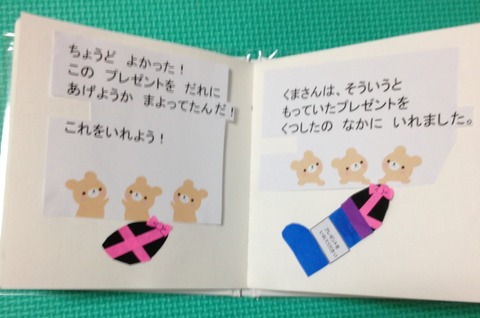 ちょうど　よかった！
この　プレゼントを　だれに
あげようか　まよってたんだ！
これをいれよう！
くまさんは、そういうと
もっていたプレゼントを
くつしたの　なかに　いれました。
プレゼントを